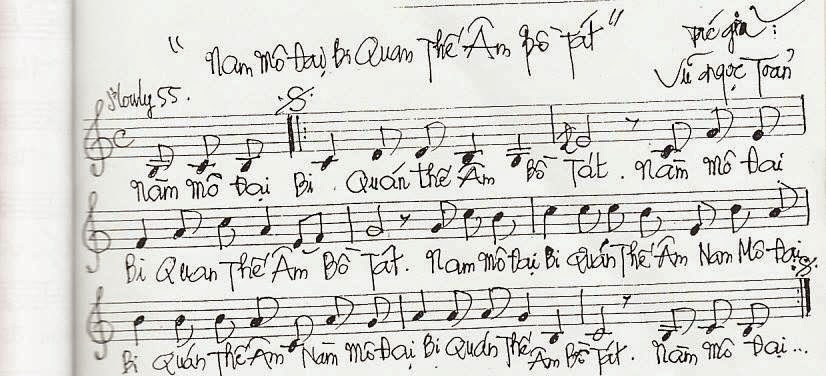 "Nam mô Đại Bi Quan Thế Âm Bồ Tát"
Tác giả:
Vũ Ngọc Toản
Slowly 55.
Nam mô Đại Bi. Quán Thế Âm Bồ Tát. Nam mô Đại
Bi Quan Thế Âm Bồ Tát. Nam mô Đại Bi Quán Thế Âm Nam Mô Đại
Bi Quán Thế Âm Nam Mô Đại Bi Quán Thế Âm Bồ Tát. Nam mô Đại...